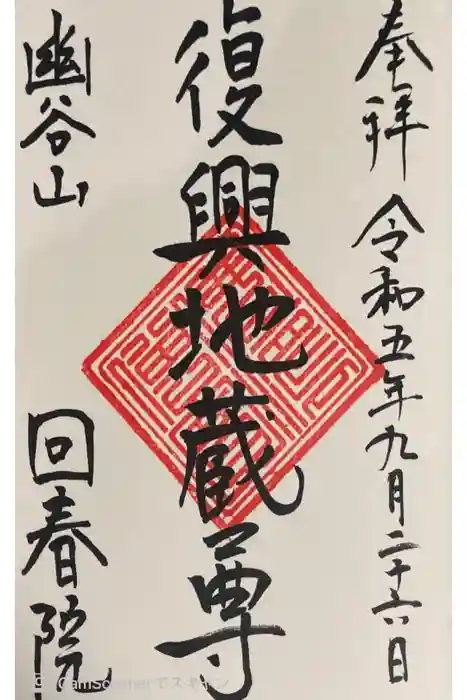 奉拝 令和五年九月二十六日
復興地蔵尊
幽谷山 回春院
CamScannerでスキャン